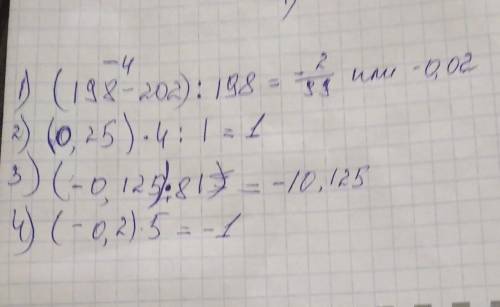 -4
1) (198 - 202) : 198 = -2/99 или -0,02
2) (0,25) · 4 : 1 = 1
3) (-0,125) : 81) = -10,125
4) (-0,2) · 5 = -1